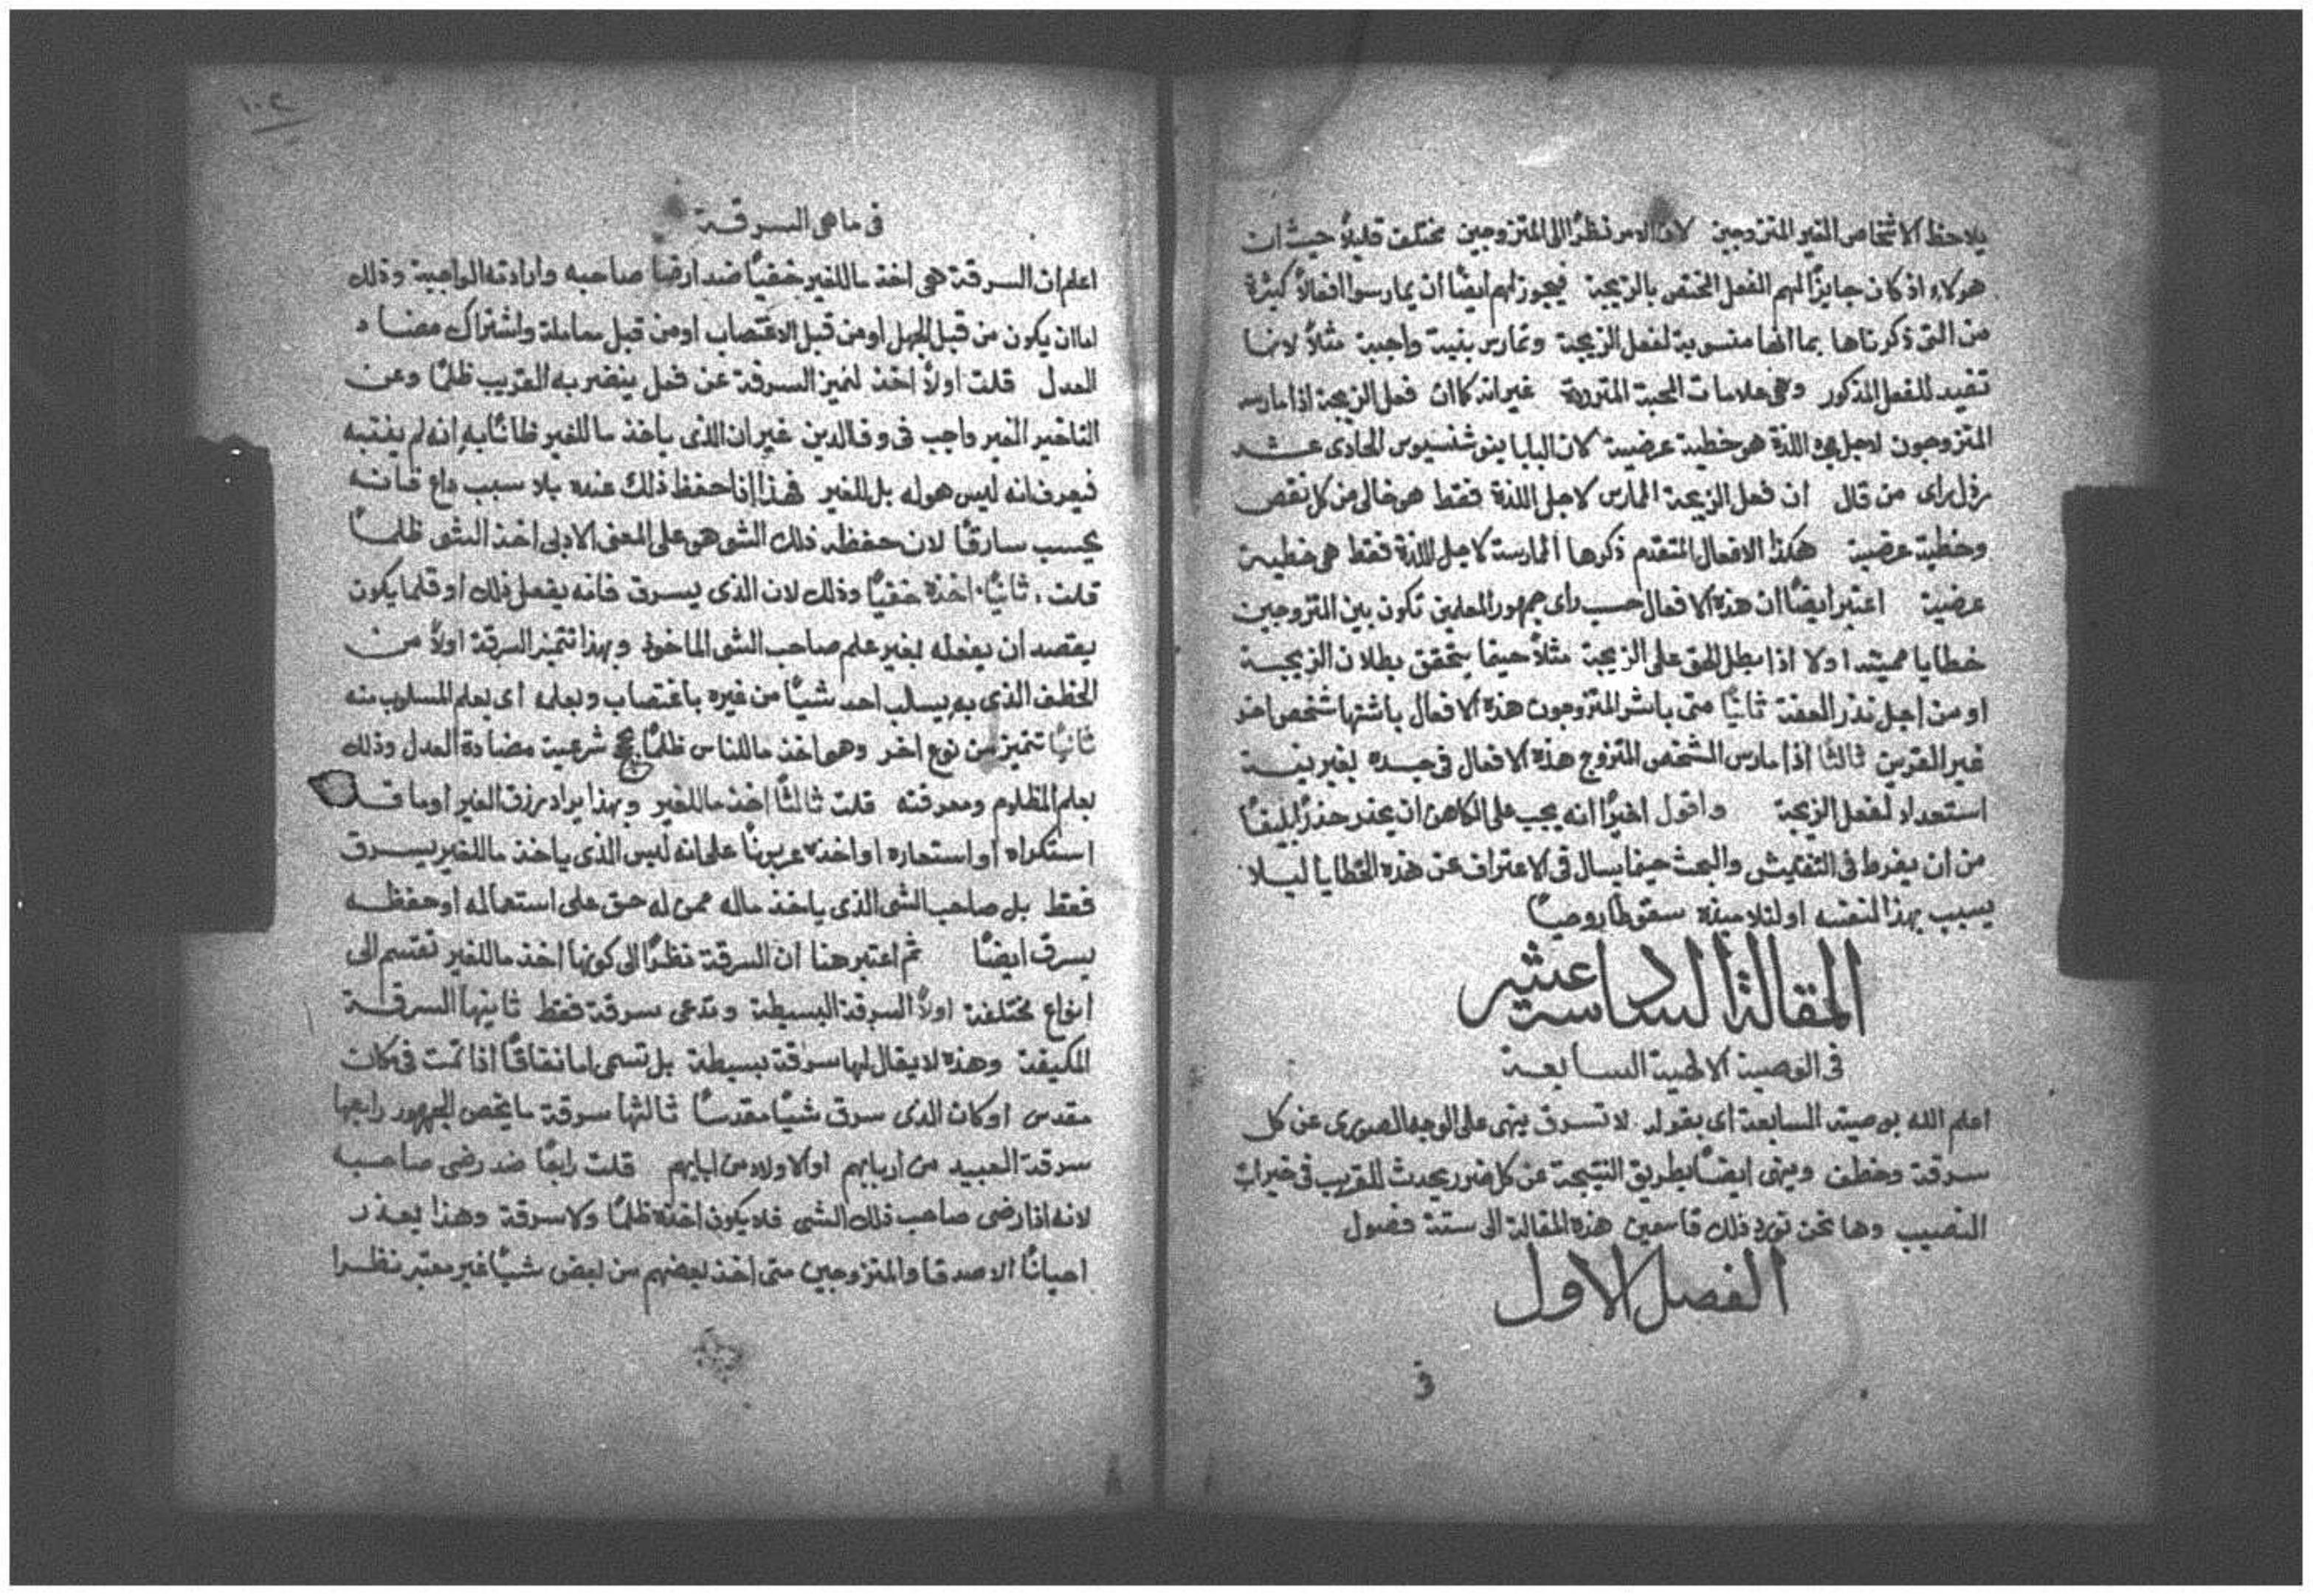 يلاحظ الاشخاص الغير المتزوجين لان الامر نظرًا الى المتزوجين مختلف قليلاً حيث ان
هولاء اذ كان جايزًا لهم الفعل المختص بالزيجة فيجوز لهم ايضًا ان يمارسوا افعالاً كثيرة
من التى ذكرناها بما انها منسوبة لفعل الزيجة وتمارس بنية واجبة مثلاً لانها
تفيد للفعل المذكور وهى علامات المحبة غير انه كما ان فعل الزيجة اذا مارسه
المتزوجون لاجل اللذة هو خطية عرضية لان البابا ينوشنسيوس الحادى عشر
رذل راى من قال ان فعل الزيجة الممارس لاجل اللذة فقط هو خالى من كل نقص
وخطية عرضية هكذا الافعال المتقدم ذكرها الممارسة لاجل اللذة فقط هى خطية
عرضية اعتبر ايضًا ان هذه الافعال حسب راى جمهور المعلمين تكون بين المتزوجين
خطايا مميتة اولا اذا بطل الحق على الزيجة مثلاً حينما يتحقق بطلان الزيجة
او من اجل نذر العفة ثانيًا متى باشر المتزوجون هذه الافعال باشتها شخص اخر
غير القرين ثالثًا اذا مارس الشخص المتزوج هذه الافعال فى جسده بغير نية
استعداد لفعل الزيجة واقول اخيرًا انه يجب على الكاهن ان يحذر حذرًا بليغًا
من ان يفرط فى التفتيش والبحث حينما يسال فى الاعتراف عن هذه الخطايا ليلا
يسبب بهذا لنفسه او لتلاميذه سقوطًا روحيًا
المقالة السادسة عشر
فى الوصية الالهية السابعة
اعلم الله بوصيته السابعة اى بقوله لا تسرق ينهى على الوجه الصورى عن كل
سرقة وخطف وينهى ايضًا بطريق النتيجة عن كل ضرر يحدث للقريب فى خيرات
النصيب وها نحن نورد ذلك قاسمين هذه المقالة الى ستة فصول
الفصل الاول
فى
١٠٤
فى ما هى السرقة
اعلم ان السرقة هى اخذ ما للغير خفيًا ضد ارضا صاحبه وارادته الواجبة وذلك
اما ان يكون من قبل الجهل او من قبل الاغتصاب او من قبل معاملة واشتراك مضاد
العدل قلت اولاً اخذ لتميز السرقة عن فعل ينضر به القريب ظلمًا وعن
التاخير الغير واجب فى وفا الدين غير ان الذى ياخذ ما للغير ظانًا به انه لم ينتبه
فيعرف انه ليس هو له بل للغير فهذا اذا حفظ ذلك عنده بلا سبب داع فانه
يحسب سارقًا لان حفظه ذلك الشى هو على المعنى الادبى اخذ الشى ظلمًا
قلت ثانيًا اخذه خفيًا وذلك لان الذى يسرق فانه يفعل ذلك او قلما يكون
يقصد ان يفعله بغير علم صاحب الشى الماخوذ وبهذا تتميز السرقة اولاً من
الخطف الذى به يسلب احد شيًا من غيره باغتصاب وبعلمه اى بعلم المسلوب منه
ثانيًا تتميز من نوع اخر وهو اخذ ما للناس ظلمًا بحج شرعية مضادة العدل وذلك
بعلم المظلوم ومعرفته قلت ثالثًا اخذ ما للغير وبهذا يراد رزق الغير او ما قد
استكراه او استعاره او اخذه عربونًا على انه ليس الذى ياخذ ما للغير يسرق
فقط بل صاحب الشى الذى ياخذ ماله ممن له حق على استعماله او حفظه
يسرق ايضًا ثم اعتبر هنا ان السرقة نظرًا الى كونها اخذ ما للغير تقتسم الى
انواع مختلفة اولاً السرقة البسيطة وتدعى سرقة فقط ثانيها السرقة
المكيفة وهذه لا يقال لها سرقة بسيطة بل تسمى اما نفاقًا اذا تمت فى مكان
مقدس او كان الذى سرق شيًا مقدسًا ثالثها سرقة ما يخص الجمهور رابعها
سرقة العبيد من اربابهم او الاولاد من ابايهم قلت رابعًا ضد رضى صاحبه
لانه اذا رضى صاحب ذلك الشى فلا يكون اخذه ظلمًا ولا سرقة وهذا يعذر
احيانًا الاصدقا والمتزوجين متى اخذ بعضهم من بعض شيًا غير معتبر نظرا